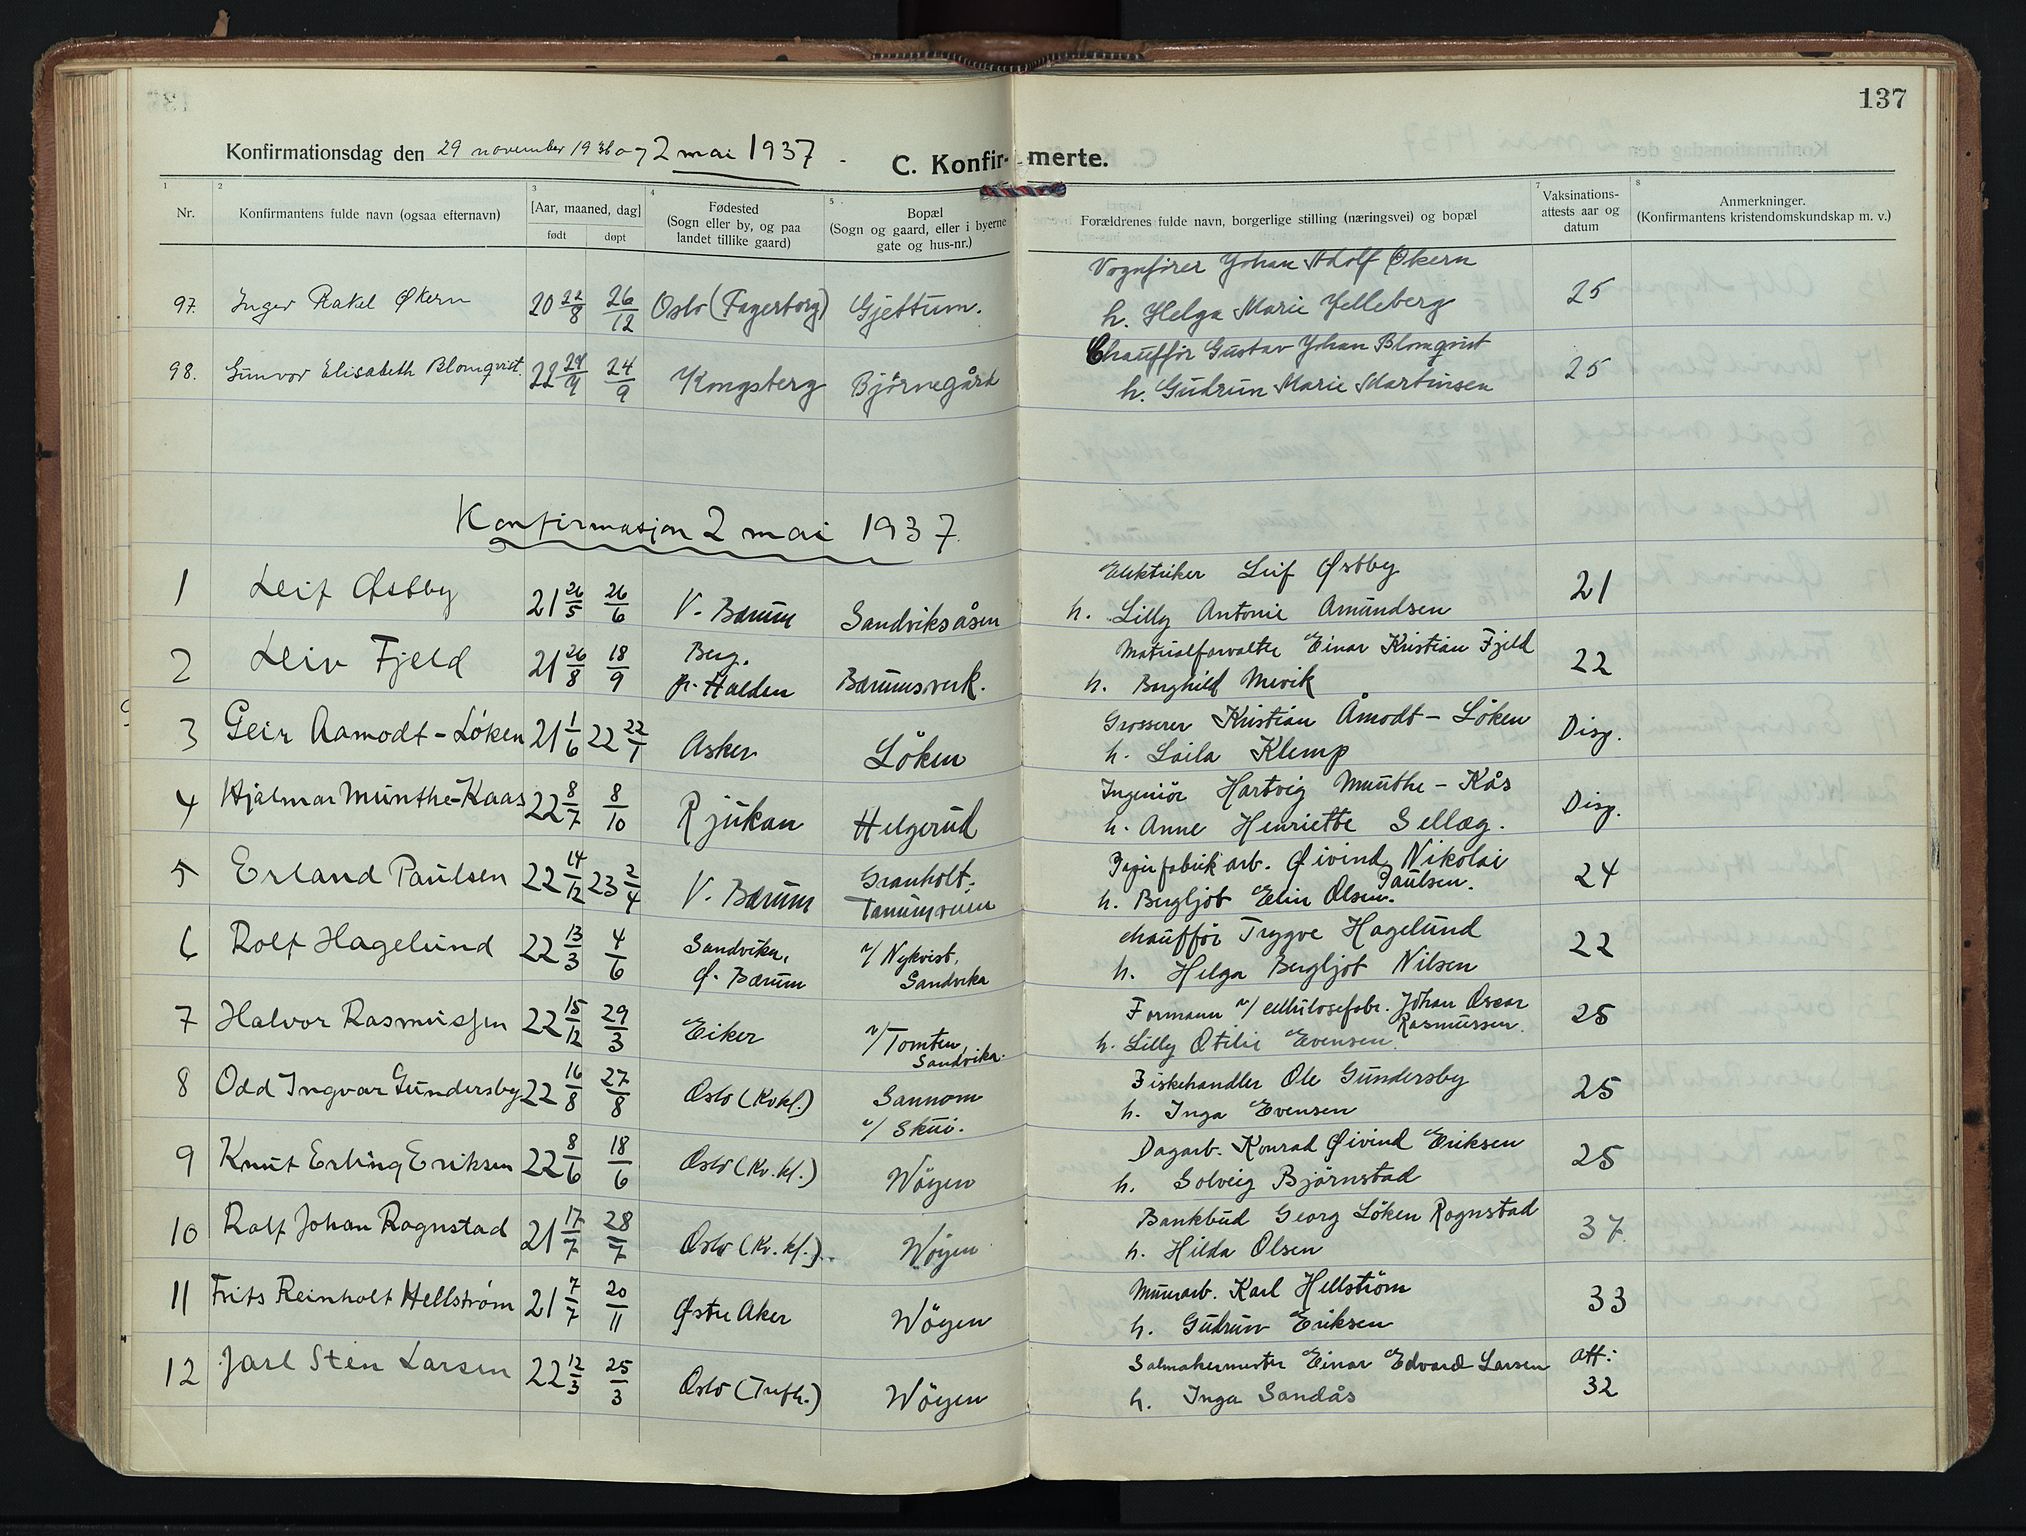 137
Konfirmationsdag den 29 november 1936 og 2 mai 1937
C. Konfir- merte.
1 2 3 4 5 7 8
Nr.
Konfirmantens fulde navn (ogsaa efternavn)
[Aar, maaned, dag]
født døpt
Fødested
(Sogn eller by, og paa
landet tillike gaard)
Bopæl
(Sogn og gaard, eller i byerne
gate og hus-nr.)
Forældrenes fulde navn, borgerlige stilling (næringsvei) og bopæl
Vaksinations-
attests aar og
datum
Anmerkninger.
(Konfirmantens kristendomskundskap m. v.)
Vognfører Johan Adolf Økern
97. Inger Rakel Økern 20 22/8 26/12 Oslo (Fagerborg) Gjettum. 25
h. Helga Marie Jelleberg
Chauffør Gustav Johan Blomqvist
98. Gunvor Elisabeth Blomqvist. 22 24/4 24/9 Kongsberg Bjørnegård 25
h. Gudrun Marie Martinsen
Konfirmasjon 2 mai 1937.
Elektriker Leif Østby
1 Leif Østby 21 26/5 26/6 V. Bærum Sandviksåsen 21
h. Lilly Antonie Amundsen
Materialforvalter Einar Kristian Fjeld
2 Leiv Fjeld 21 26/8 18/9 Berg, pr. Halden Bærumsverk. 22
h. Borghild Mevik
Grosserer Kristian Åmodt-Løken
3 Geir Aamodt-Løken 21 1/6 22 22/1 Asker Løken Disp.
h. Laila Klemp
Ingeniør Hartvig Munthe-Kås
4 Hjalmar Munthe-Kaas 22 8/7 8/10 Rjukan Helgerud Disp.
h. Anne Henriette Sellæg.
Papirfabrik arb. Øivind Nikolai Paulsen.
5 Erland Paulsen 22 14/12 23 2/4 V. Bærum Granholt, Tanumveien 24
h. Bergljot Elin Olsen.
chauffør Trygve Hagelund
6 Rolf Hagelund 22 13/3 4/6 Sandvika, Ø. Bærum v/ Nykvist, Sandvika 22
h. Helga Bergljot Nilsen
Formann v/ cellulosefabr. Johan Oscar Rasmussen.
7 Halvor Rasmussen 22 15/12 29/3 Eiker v/ Tomten Sandvika. 25
h. Lilly Otilie Evensen
Fiskehandler Ole Gundersby
8 Odd Ingvar Gundersby 22 16/8 27/8 Oslo (Kvkl.) Sannom v/ Skui. 25
h. Inga Evensen
Dagarb. Konrad Øivind Eriksen
9 Knut Erling Eriksen 22 8/6 18/6 Oslo (Kv. kl.) Wøyen 25
h. Solveig Bjørnstad
Bankbud Georg Løken Rognstad
10 Rolf Johan Rognstad 21 17/7 28/7 Oslo (Kv. kl.) Wøyen 37.
h. Hilda Olsen
Murarb. Karl Hellstrøm
11 Frits Reinholt Hellstrøm 21 7/7 20/11 Østre Aker Wøyen 33
h. Gudrun Eriksen
Salmakermester Einar Edvard Larsen
12 Jarl Sten Larsen 22 12/3 25/3 Oslo (Trefh.) Wøyen att: 32
h. Inga Sandås